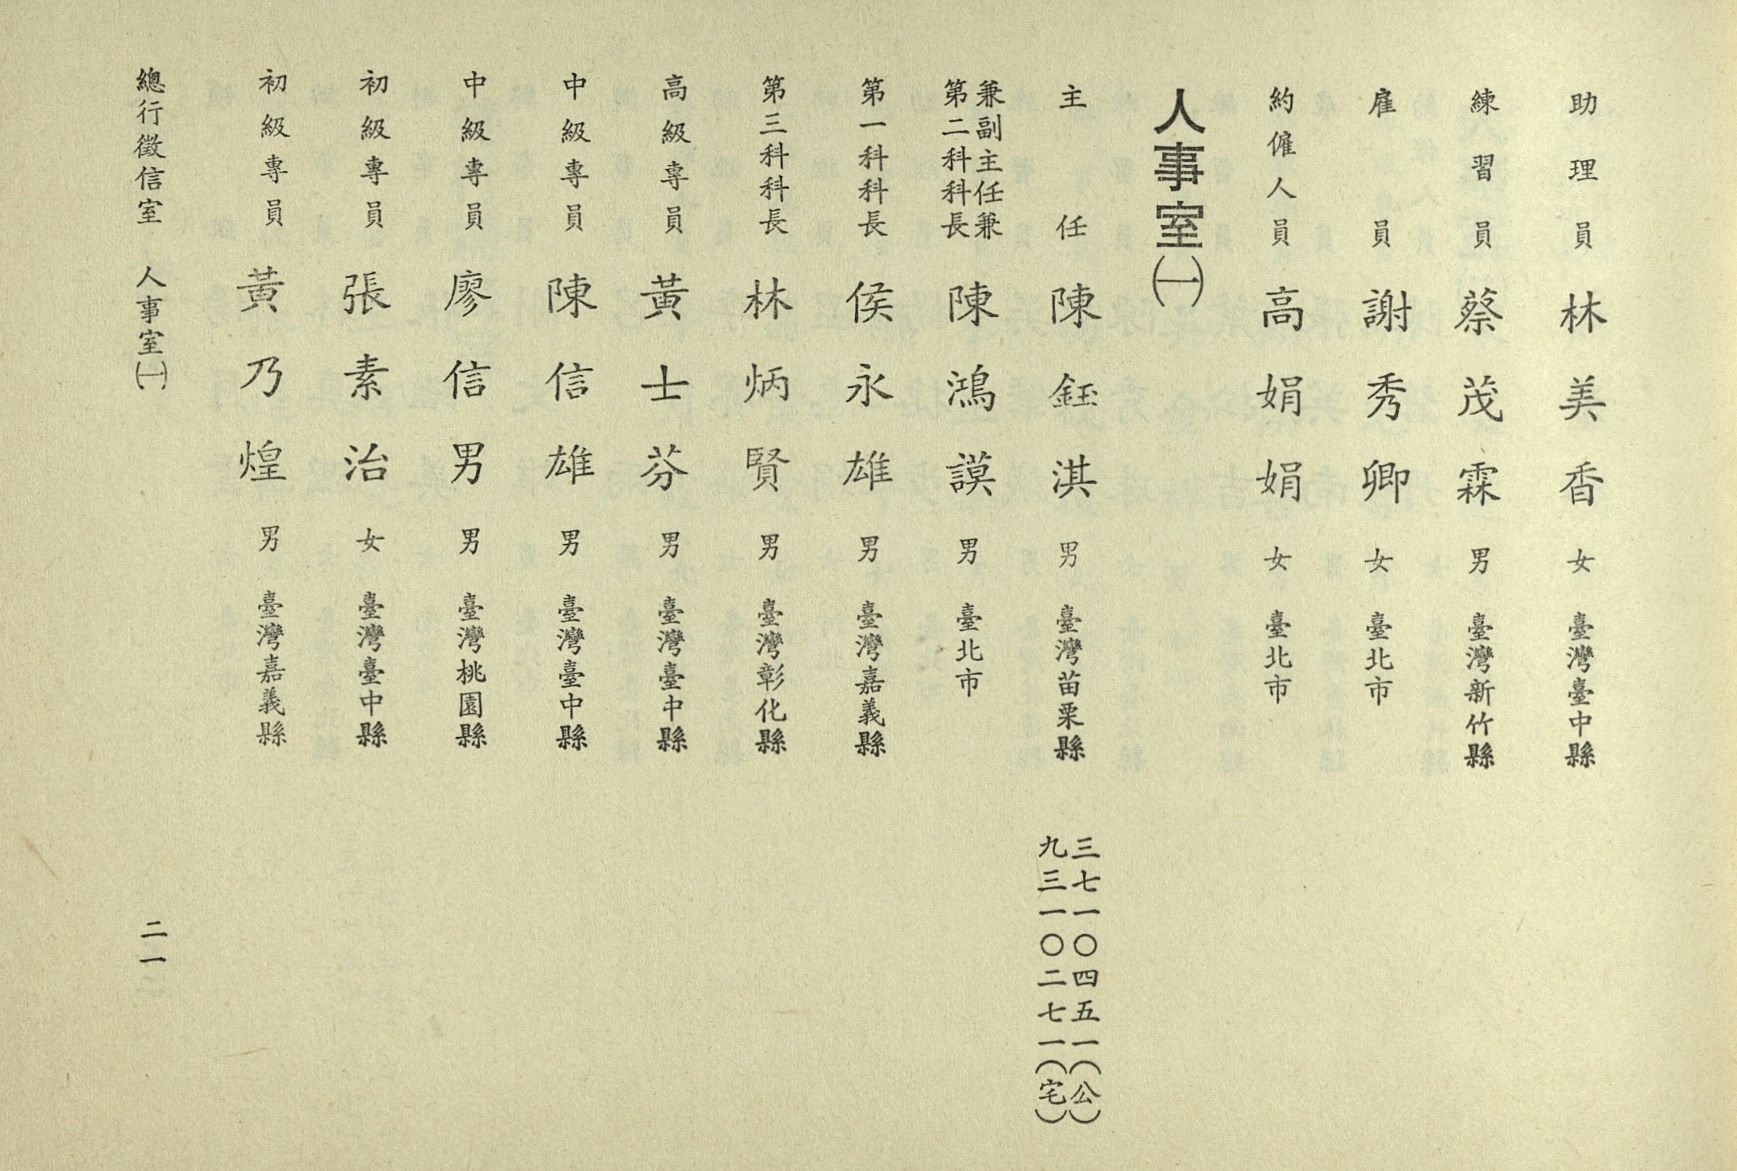 助理員 林美香 女 臺灣臺中縣
練習員 蔡茂霖 男 臺灣新竹縣
雇員 謝秀卿 女 臺北市
約僱人員 高娟娟 女 臺北市
人事室㈠
主任 陳鈺淇 男 臺灣苗栗縣 三七一〇四五一(公)
九三一〇二七一(宅)
兼副主任兼
第二科科長 陳鴻謨 男 臺北市
第一科科長 侯永雄 男 臺灣嘉義縣
第三科科長 林炳賢 男 臺灣彰化縣
高級專員 黃士芬 男 臺灣臺中縣
中級專員 陳信雄 男 臺灣臺中縣
中級專員 廖信男 男 臺灣桃園縣
初級專員 張素治 女 臺灣臺中縣
初級專員 黃乃煌 男 臺灣嘉義縣
總行徵信室 人事室㈠ 二一